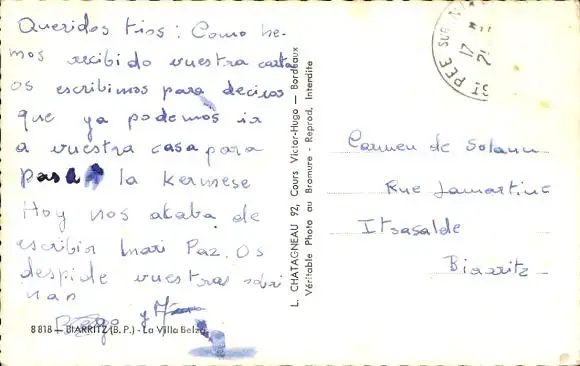 Queridos tios: Como he-
mos recibido vuestra carta
os escribimos para deciros
que ya podemos ir
a vuestra casa para
pasar la Kermese
Hoy nos acaba de
escribir Mari Paz. Os
despide vuestras sobri
nas
y
8818 — BIARRITZ (B. P.) - La Villa Belza
L. CHATAGNEAU 92, Cours Victor-Hugo — Bordeaux
Véritable Photo au Bromure - Reprod. Interdite
ST PEE SUR
17
Carmen de Solaun
Rue Lamartine
Itsasalde
Biarritz